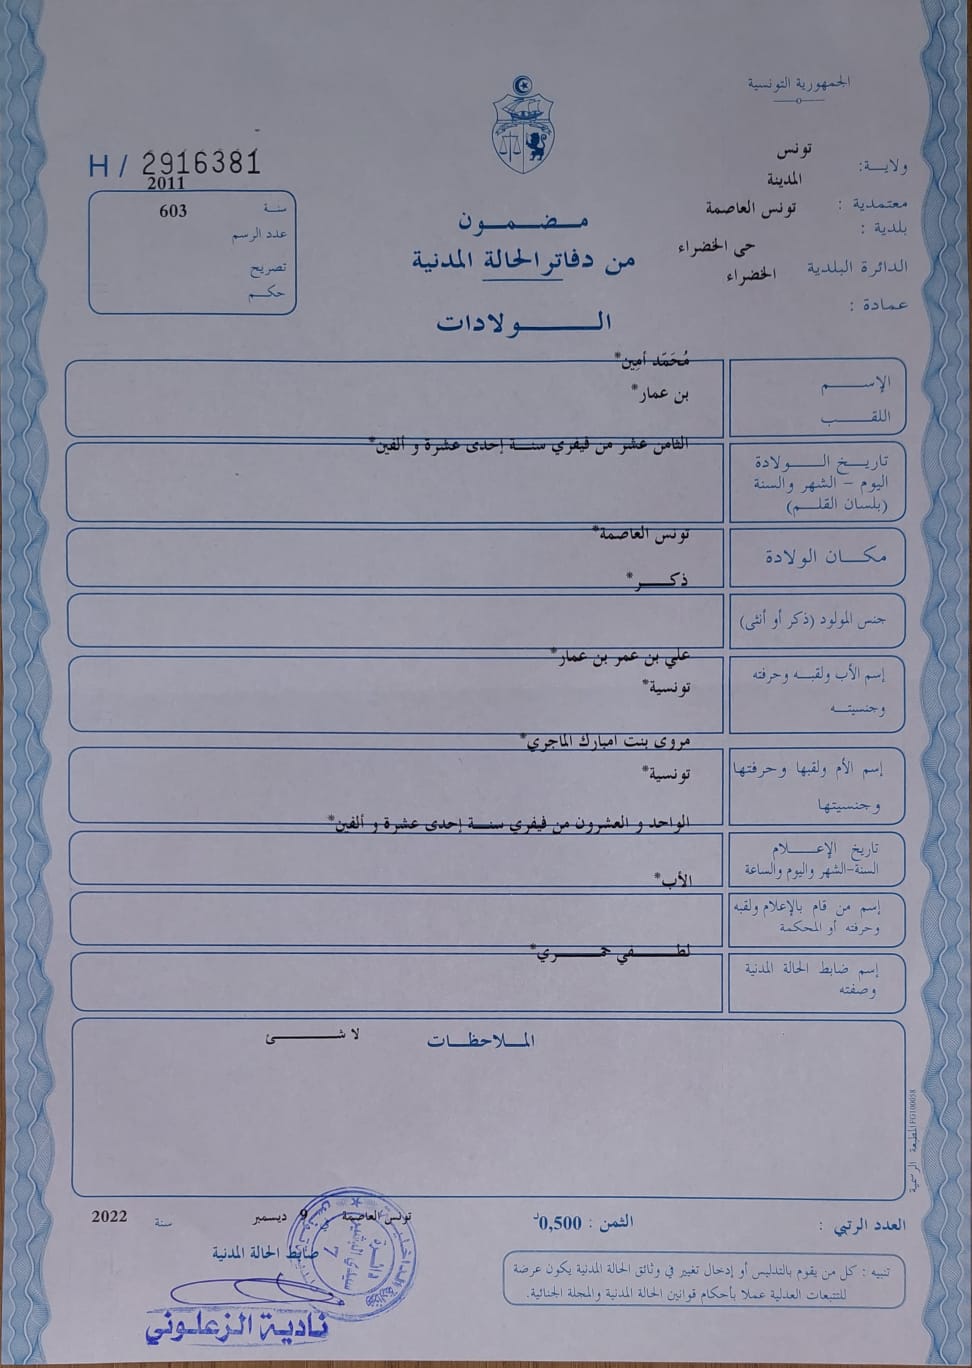 الجمهورية التونسية
H / 2916381
ولاية: تونس
معتمدية : المدينة
بلدية : تونس العاصمة
الدائرة البلدية حى الخضراء
عمادة : الخضراء
سنة 2011
عدد الرسم 603
تصريح
حكم
مضمون
من دفاتر الحالة المدنية
الولادات
الإسم مُحَمّد أمِين*
اللقب بن عمار*
تاريخ الولادة
اليوم - الشهر والسنة
(بلسان القلم)
الثامن عشر من فيفري سنة إحدى عشرة و ألفين*
مكان الولادة تونس العاصمة*
جنس المولود (ذكر أو أنثى) ذكر*
إسم الأب ولقبه وحرفته
وجنسيته
علي بن عمر بن عمار*
تونسية*
إسم الأم ولقبها وحرفتها
وجنسيتها
مروى بنت امبارك الماجري*
تونسية*
تاريخ الإعلام
السنة-الشهر واليوم والساعة
الواحد و العشرون من فيفري سنة إحدى عشرة و ألفين*
إسم من قام بالإعلام ولقبه
وحرفته أو المحكمة
الأب*
إسم ضابط الحالة المدنية
وصفته
لطفي حمري*
الملاحظات
لا شئ
المطبعة الرسمية FG100058
العدد الرتبي :
الثمن : 0,500د
تونس العاصمة 9 ديسمبر سنة 2022
ضابط الحالة المدنية
تنبيه : كل من يقوم بالتدليس أو إدخال تغيير في وثائق الحالة المدنية يكون عرضة
للتتبعات العدلية عملا بأحكام قوانين الحالة المدنية والمجلة الجنائية.
دائرة
سيدي البشير
7
نادية الزعلوني